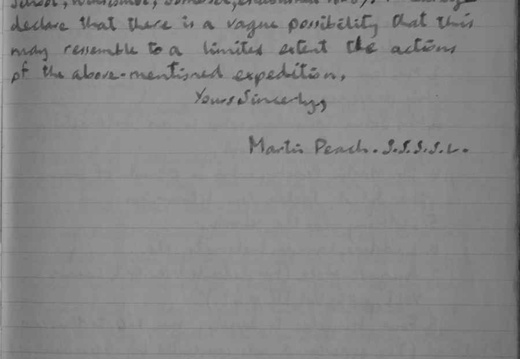 School, Winscombe, Somerset,
declare that there is a vague possibility that this
may resemble to a limited extent the actions
of the above-mentioned expedition.
Yours Sincerely,
Martin Peach. S.S.S.S.L.